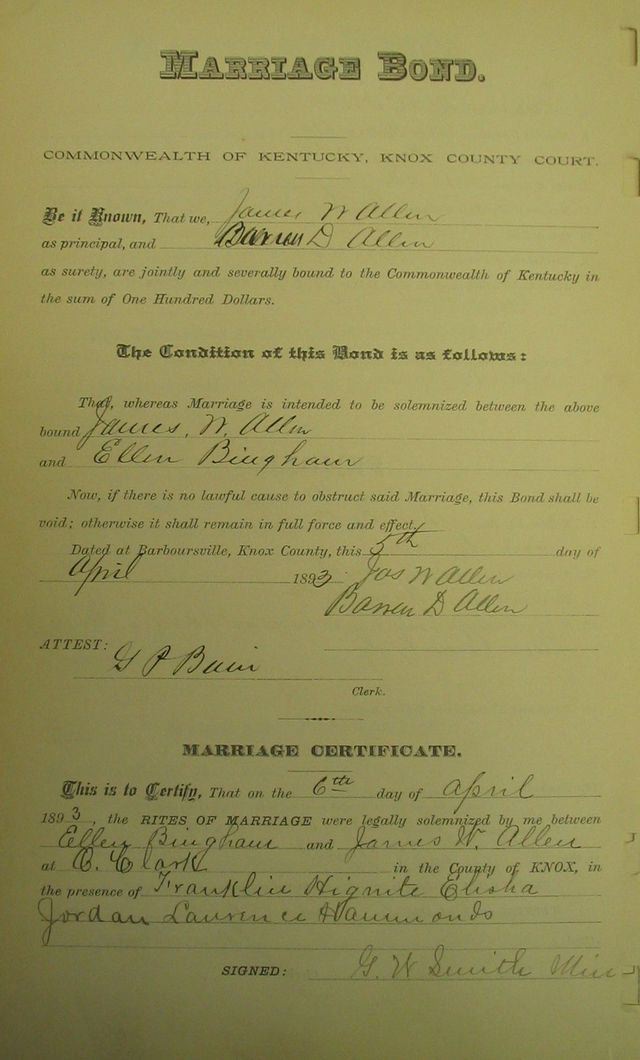 MARRIAGE BOND.
COMMONWEALTH OF KENTUCKY, KNOX COUNTY COURT.
Be it Known, That we, James W Allen
as principal, and Barren D Allen
as surety, are jointly and severally bound to the Commonwealth of Kentucky in
the sum of One Hundred Dollars.
The Condition of this Bond is as follows:
That, whereas Marriage is intended to be solemnized between the above
bound James, W. Allen
and Ellen Bingham
Now, if there is no lawful cause to obstruct said Marriage, this Bond shall be
void; otherwise it shall remain in full force and effect.
Dated at Barboursville, Knox County, this 5th day of
April 1893. Jas W Allen
Barren D Allen
ATTEST:
G P Bain
Clerk.
MARRIAGE CERTIFICATE.
This is to Certify, That on the 6th day of April
1893, the RITES OF MARRIAGE were legally solemnized by me between
Ellen Bingham and James W. Allen
at C. Clark in the County of KNOX, in
the presence of Franklin Hignite Elisha
Jordan Laurence Hammonds
SIGNED: G. W Smith Min